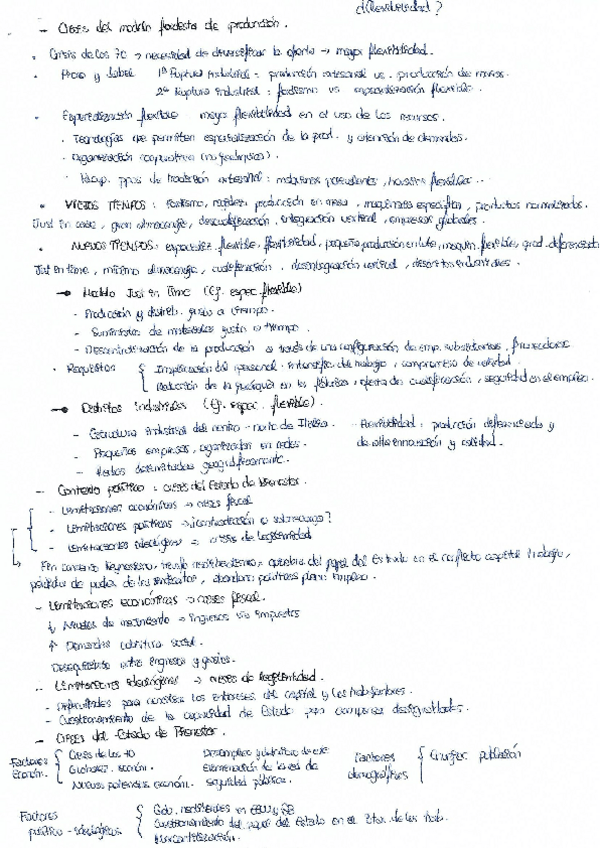 ¿flexibilidad?
- Crisis del modelo fordista de producción.
• Crisis de los 70 → necesidad de diversificar la oferta → mayor flexibilidad.
• Piore y Sabel 1ª Ruptura Industrial: producción artesanal vs. producción de masas.
2ª Ruptura Industrial: fordismo vs especialización flexible.
• Especialización flexible mayor flexibilidad en el uso de los recursos.
· Tecnologías que permiten especialización de la prod. y atención de demandas.
· Organización cooperativa (no jerárquica).
· Recup. ppios de tradición artesanal: máquinas polivalentes, horario flexible...
• VIEJOS TIEMPOS: fordismo, rigidez, producción en masa, maquinaria específica, productos normalizados.
Just in case, gran almacenaje, descualificación, integración vertical, empresas globales.
• NUEVOS TIEMPOS: especializ. flexible, flexibilidad, pequeña producción en lote, maquin. flexible, prod. diferenciada
Just in time, mínimo almacenaje, cualificación, desintegración vertical, distritos industriales.
→ Modelo Just in Time (Ej. espec. flexible)
- Producción y distrib. justo a tiempo.
- Suministros de materiales justo a tiempo.
- Descentralización de la producción a través de una configuración de emp. subsidiarias, proveedoras
· Requisitos { Implicación del personal: intensific. del trabajo, compromiso de calidad.
Reducción de la jerarquía en las fábricas, oferta de cualificación, seguridad en el empleo.
→ Distritos Industriales (Ej. espec. flexible).
- Estructura industrial del centro-norte de Italia.
- Pequeñas empresas, organizadas en redes.
- Áreas delimitadas geográficamente.
- Flexibilidad: producción diferenciada y de alta innovación y calidad.
- Contexto político: crisis del Estado de Bienestar.
- Limitaciones económicas → crisis fiscal
- Limitaciones políticas → ¿contratación o sobrecarga?
- Limitaciones ideológicas → crisis de legitimidad
Fin consenso keynesiano, triunfo neoliberalismo: quiebra del papel del Estado en el conflicto capital trabajo,
pérdida de poder de los sindicatos, abandono políticas pleno empleo.
- Limitaciones económicas → crisis fiscal.
↓ Niveles de crecimiento → ingresos vía impuestos
↑ Demandas cobertura social.
Desequilibrio entre ingresos y gastos.
- Limitaciones ideológicas → crisis de legitimidad.
- Dificultades para conciliar los intereses del capital y los trabajadores.
- Cuestionamiento de la capacidad de Estado para compensar desigualdades.
- Crisis del Estado de Bienestar.
Factores económ. { Crisis de los 70
Globaliz. económ.
Nuevas potencias económ.
seguridad pública.
Factores demográficos { población
Factores político-ideológicos { Gob. neoliberales en EEUU y GB
Cuestionamiento del papel del Estado en el
Mercantilización.